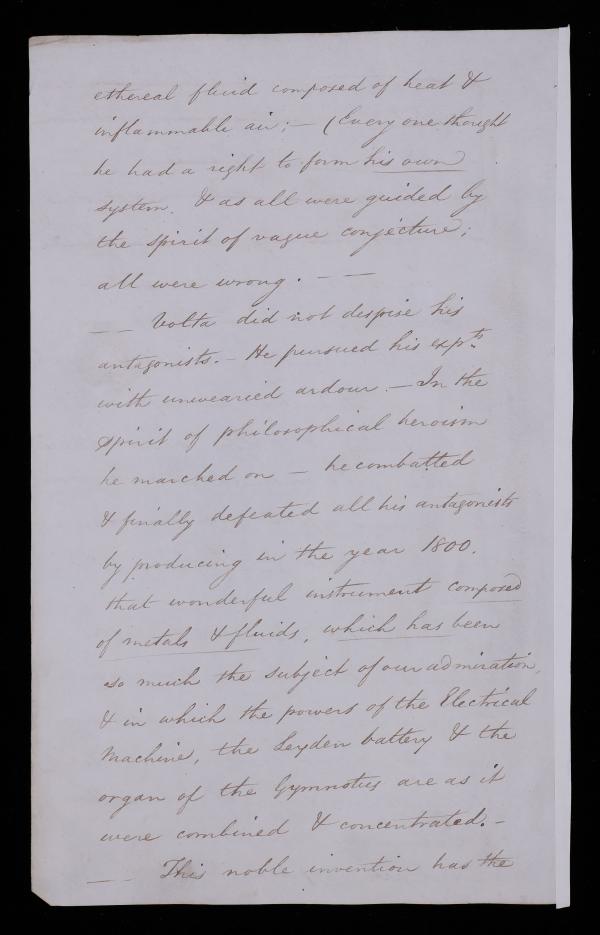 ethereal fluid composed of heat &
inflammable air; — (Every one thought
he had a right to form his own)
system. & as all were guided by
the spirit of vague conjecture;
all were wrong. — —
— — Volta did not despise his
antagonists. — He pursued his expts.
with unwearied ardour. — In the
spirit of philosophical heroism
he marched on — he combatted
& finally defeated all his antagonists
by producing in the year 1800.
that wonderful instrument composed
of metals & fluids, which has been
so much the subject of our admiration,
& in which the powers of the Electrical
Machine, the Leyden battery & the
organ of the Gymnotus are as it
were combined & concentrated. —
— This noble invention has the